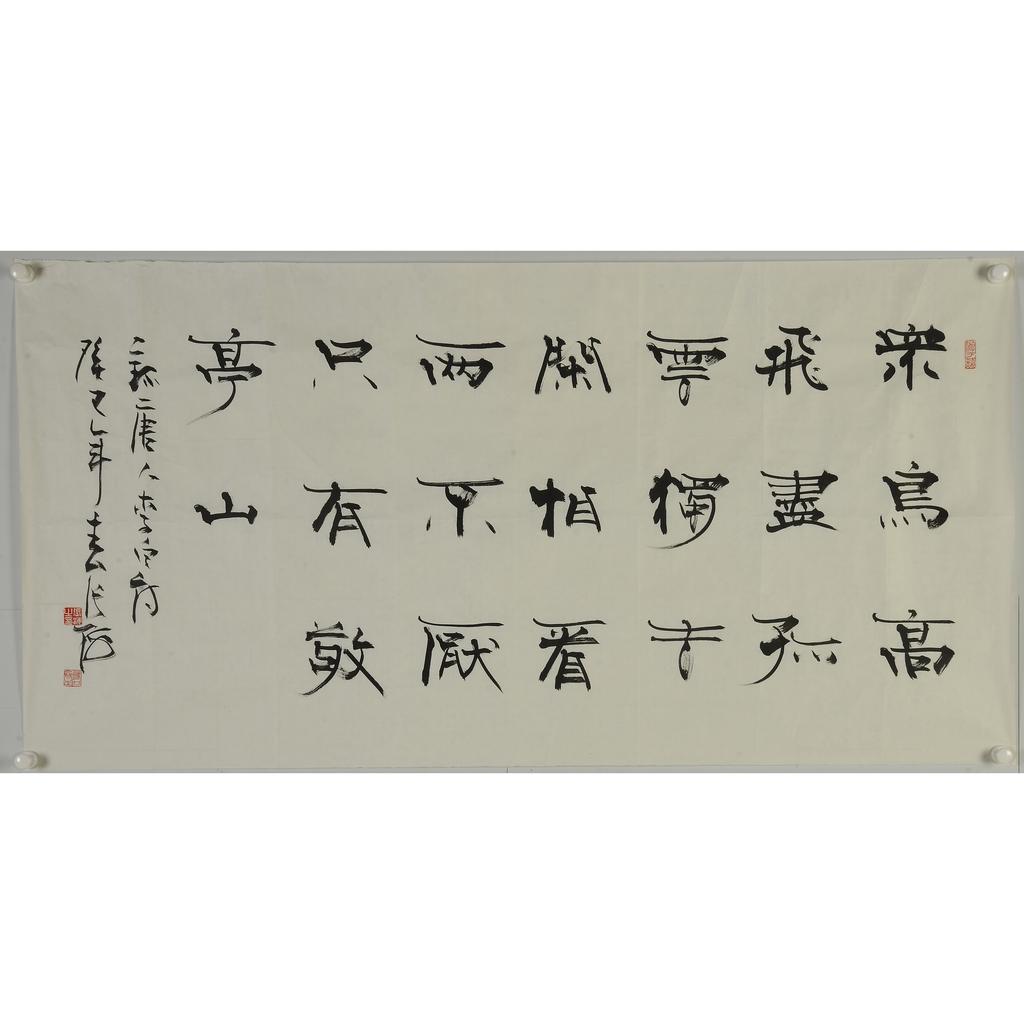 眾鳥高
飛盡孤
雲獨去
閑相看
兩不厭
只有敬
亭山
唐人李白詩
癸巳年春